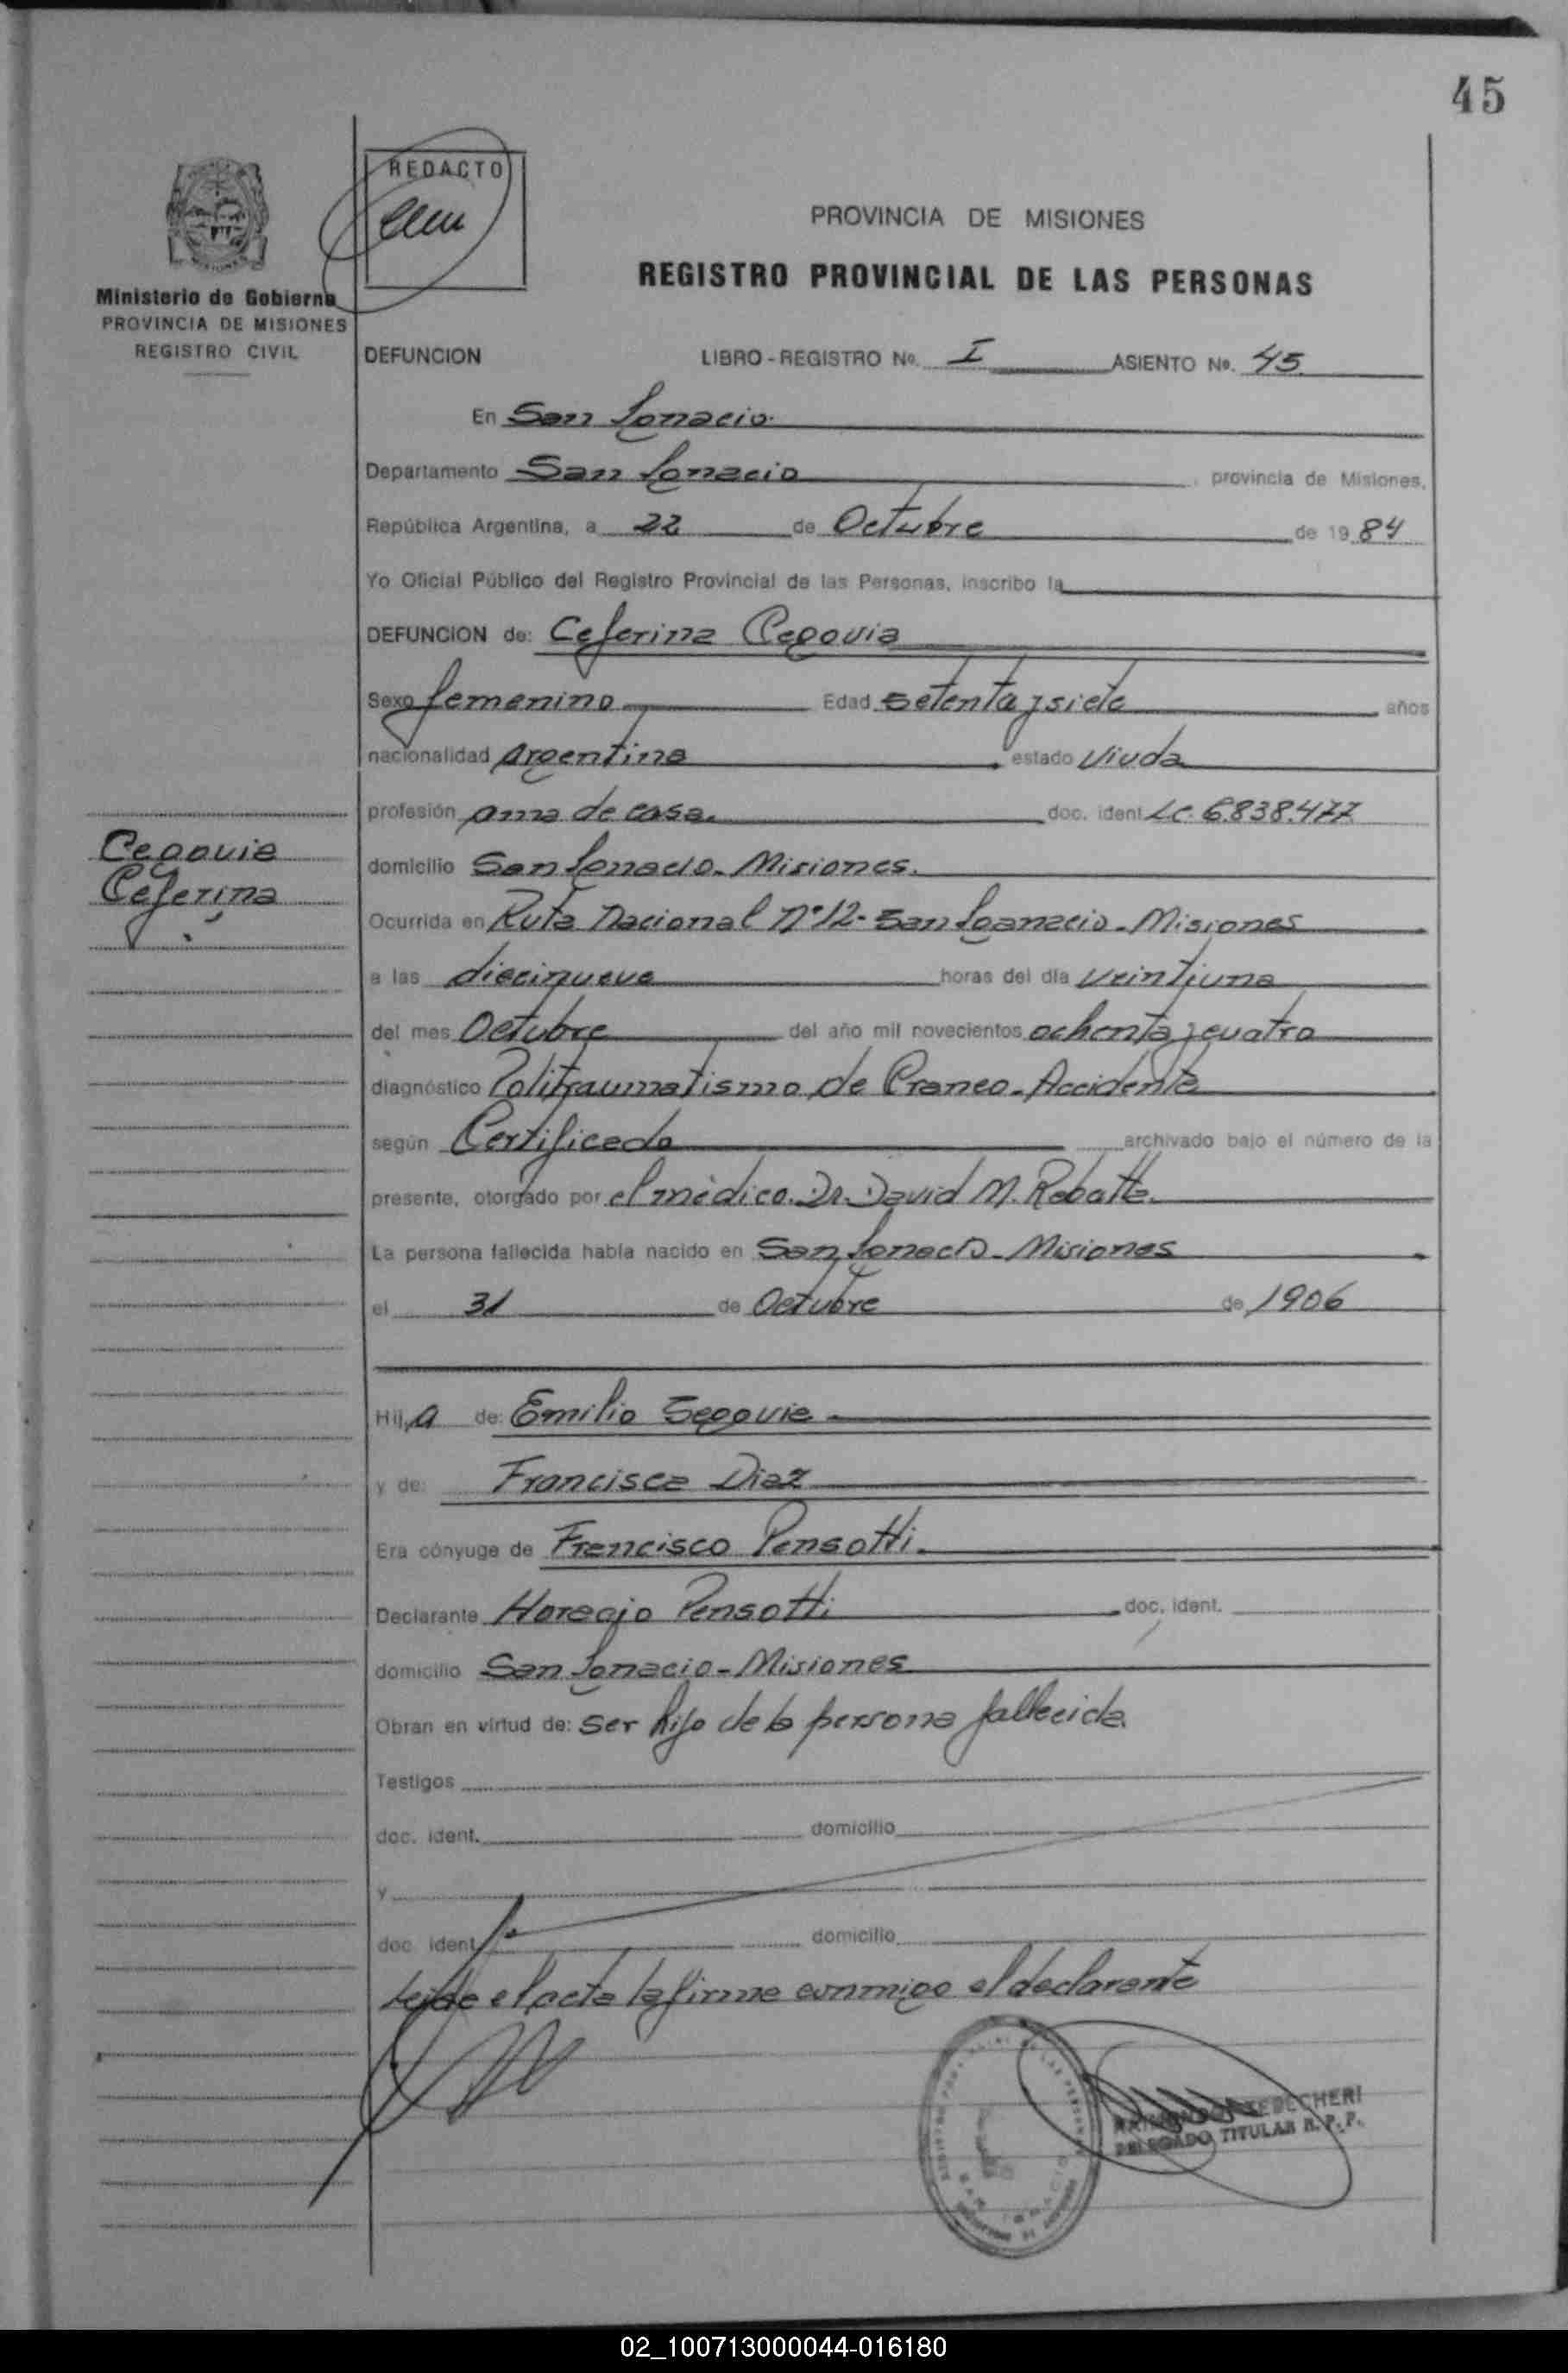 45
REDACTO
PROVINCIA DE MISIONES
REGISTRO PROVINCIAL DE LAS PERSONAS
Ministerio de Gobierno
PROVINCIA DE MISIONES
REGISTRO CIVIL
DEFUNCION LIBRO - REGISTRO No. I ASIENTO No. 45
En San Ignacio
Departamento San Ignacio, provincia de Misiones,
República Argentina, a 22 de Octubre de 1984
Yo Oficial Público del Registro Provincial de las Personas, inscribo la
DEFUNCION de: Ceferina Cegovia
Sexo femenino Edad setenta y siete años
nacionalidad argentina estado Viuda
profesión ama de casa. doc. ident. LC. 6.838.477
Cegovia
Ceferina
domicilio San Ignacio. Misiones.
Ocurrida en Ruta Nacional N° 12- San Iganacio - Misiones
a las diecinueve horas del día veintiuna
del mes Octubre del año mil novecientos ochenta y cuatro
diagnóstico Politraumatismo de Craneo - Accidente
según Certificado archivado bajo el número de la
presente, otorgado por el médico. Dr. David M. Rebatte.
La persona fallecida había nacido en San Ignacio - Misiones
el 31 de Octubre de 1906
Hija de: Emilio Segovia
y de: Francisca Diaz
Era cónyuge de Francisco Pensotti.
Declarante Horacio Pensotti doc. ident.
domicilio San Ignacio - Misiones
Obran en virtud de: ser hijo de la persona fallecida
Testigos
doc. ident. domicilio
y
doc. ident. domicilio
Leida el acta la firma conmigo el declarante
DELEGADO TITULAR R. P. P.
02_100713000044-016180